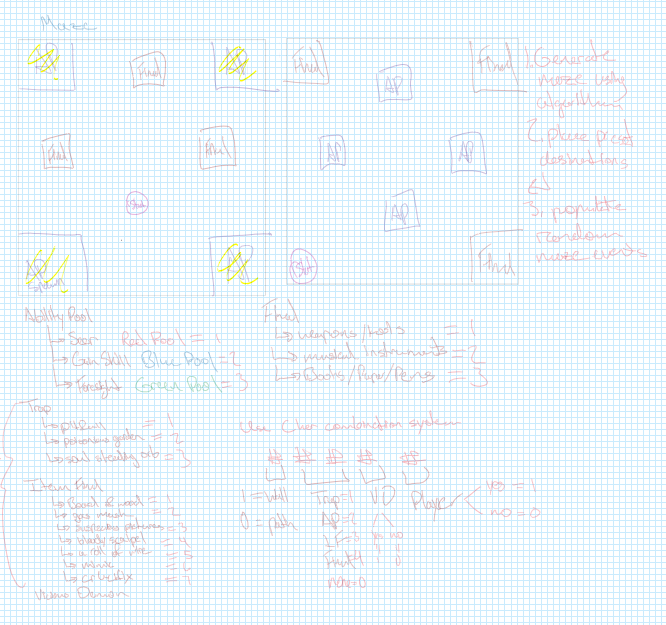 Maze
AP
Find
AP
Find
Find
AP
Find
Find
AP
AP
Start
AP
AP
Spawn
AP
Start
Find
1. Generate
maze using
algorithm
2. place preset
destinations
3. populate
random
maze events
Ability Pool
Seer Red Pool = 1
Gun Skill Blue Pool = 2
Foresight Green Pool = 3
Find
weapons/tools = 1
musical Instruments = 2
Books/Paper/Pens = 3
Trap
pitfall = 1
poisonous garden = 2
soul stealing orb = 3
Item Find
= 1
= 2
suspicious pictures = 3
bloody scalpel = 4
a roll of wire = 5
mirror = 6
crucifix = 7
Demon
Use Char combination system
# # # # #
1 = wall
0 = path
Trap = 1
AP = 2
= 3
= 4
none = 0
VD
yes no
1 0
Player
yes = 1
no = 0